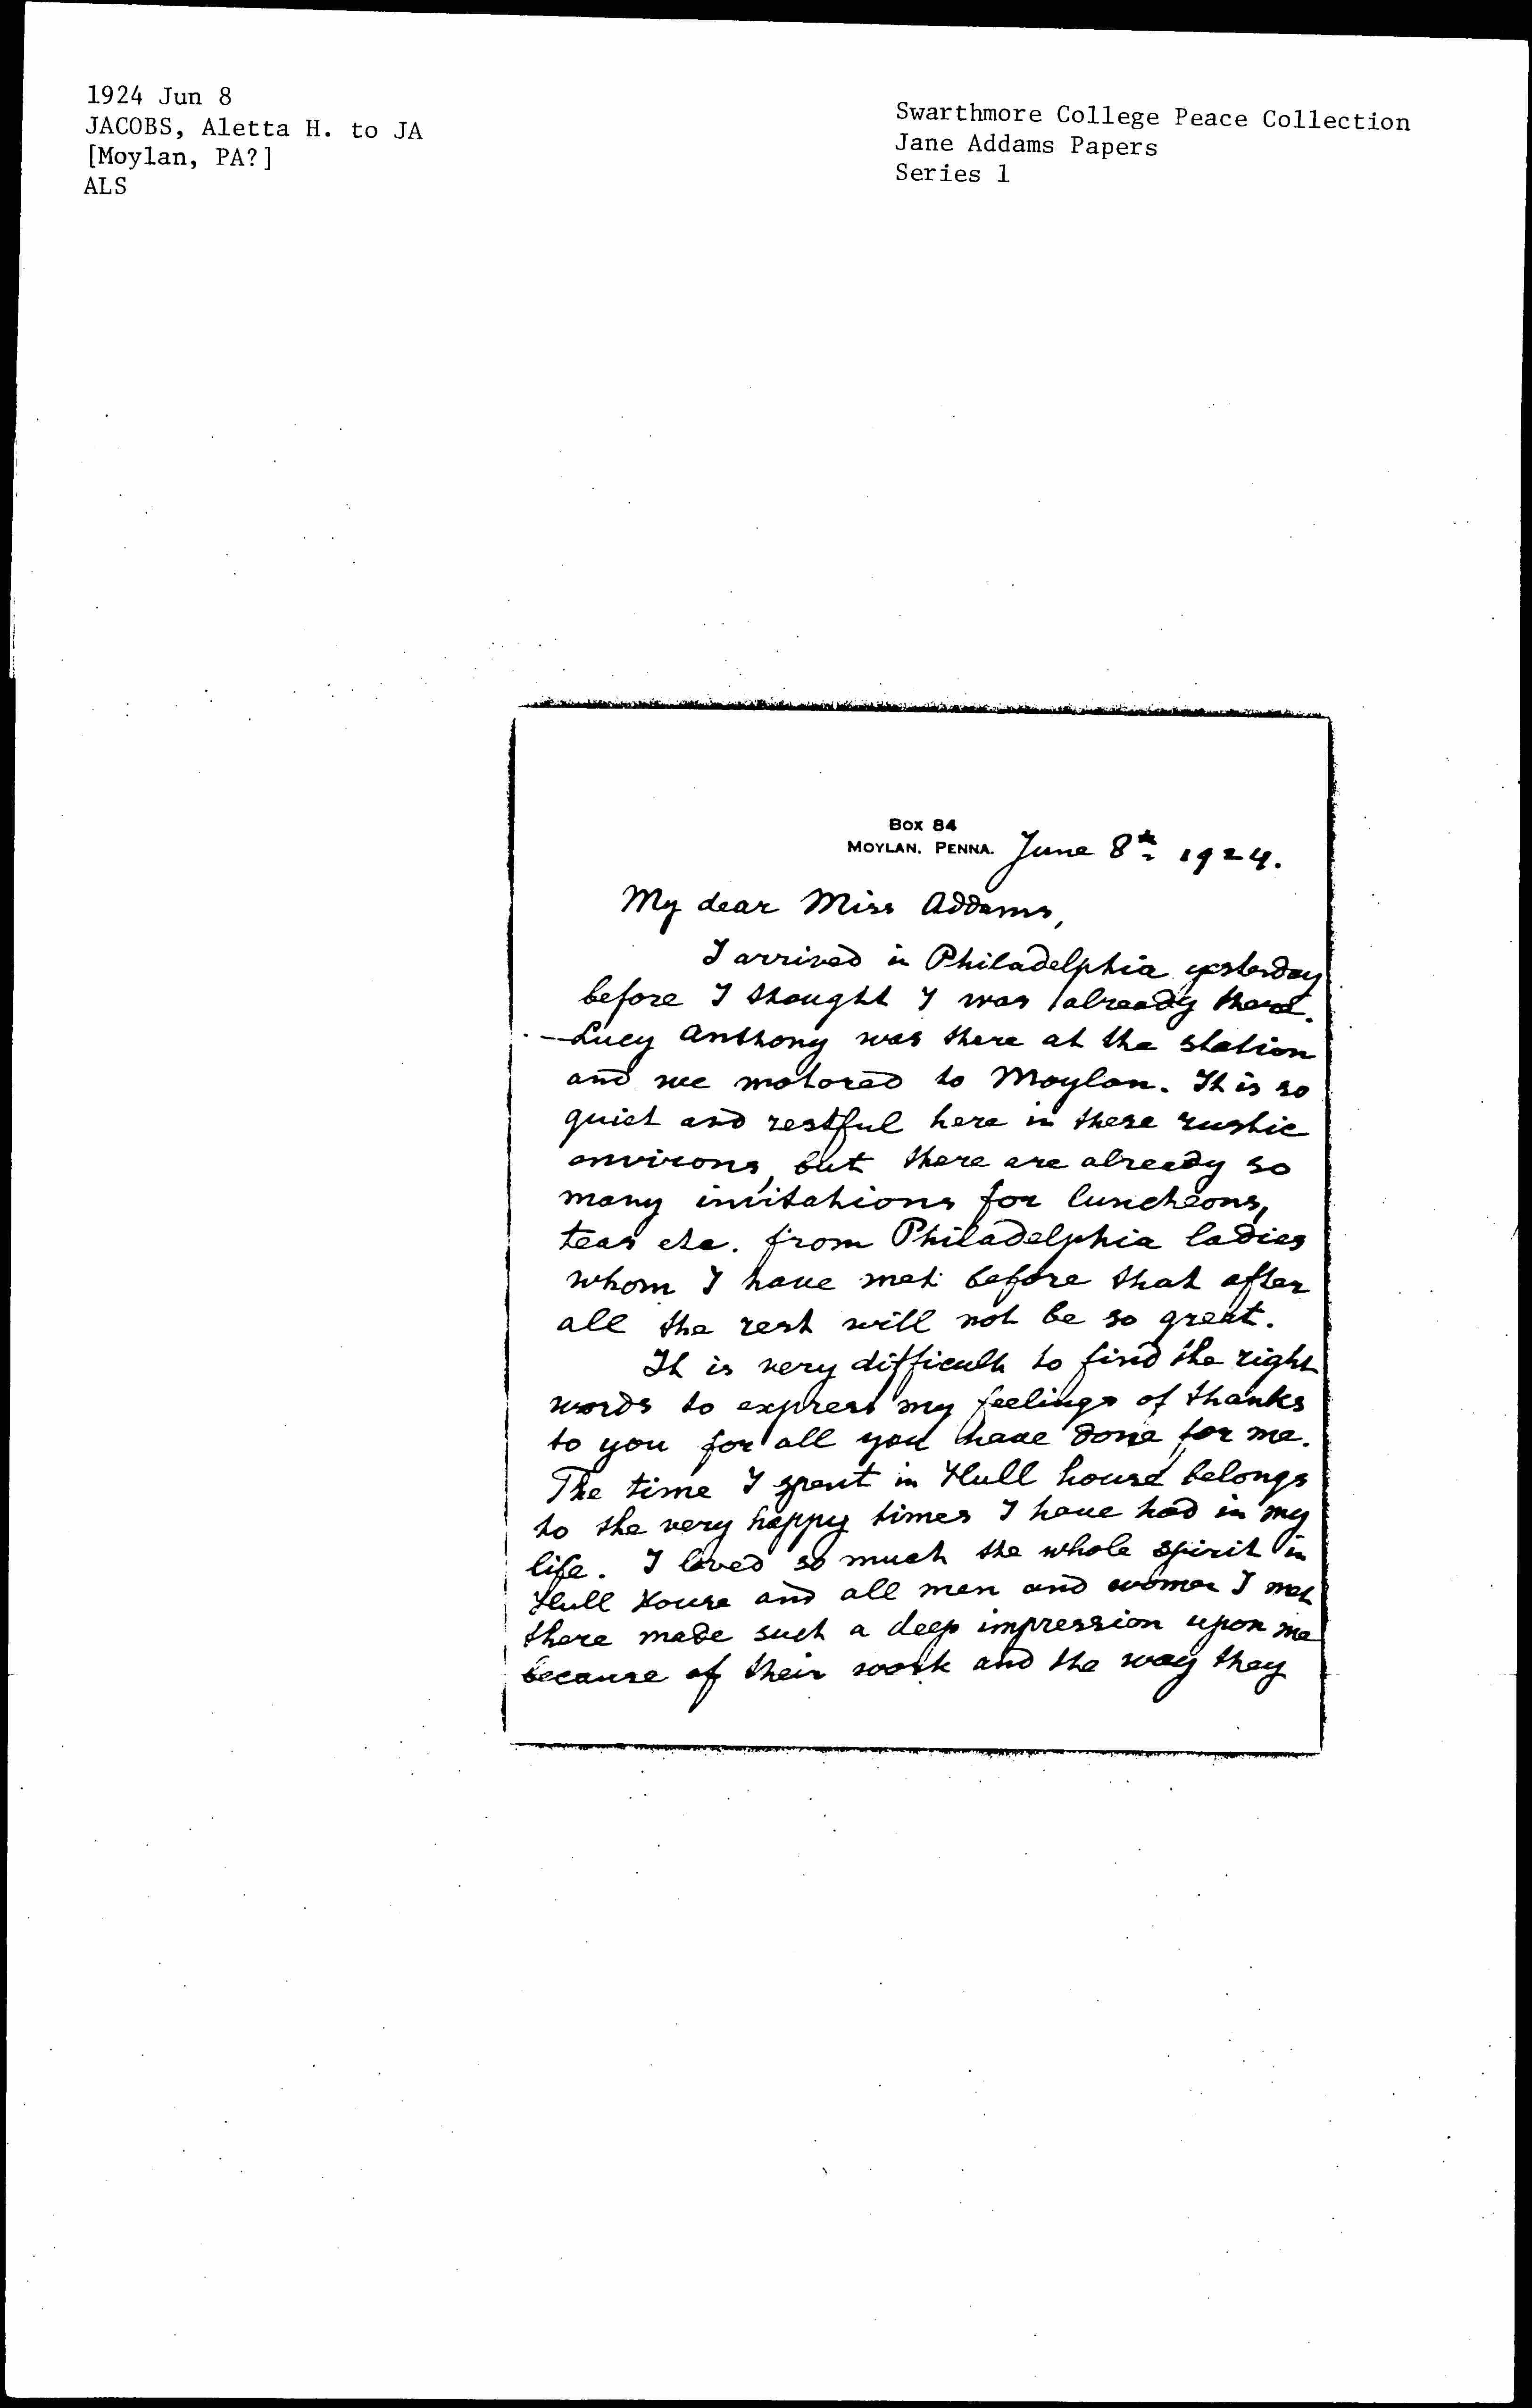 1924 Jun 8
JACOBS, Aletta H. to JA
[Moylan, PA?]
ALS
Swarthmore College Peace Collection
Jane Addams Papers
Series 1
Box 84
MOYLAN, PENNA. June 8th 1924.
My dear Miss Addams,
I arrived in Philadelphia yesterday
before I thought I was already there.
—Lucy Anthony was there at the station
and we motored to Moylan. It is so
quiet and restful here in these rustic
environs, but there are already so
many invitations for luncheons,
teas etc. from Philadelphia ladies
whom I have met before that after
all the rest will not be so great.
It is very difficult to find the right
words to express my feelings of thanks
to you for all you have done for me.
The time I spent in Hull house belongs
to the very happy times I have had in my
life. I loved so much the whole spirit in
Hull House and all men and women I met
there made such a deep impression upon me
because of their work and the way they